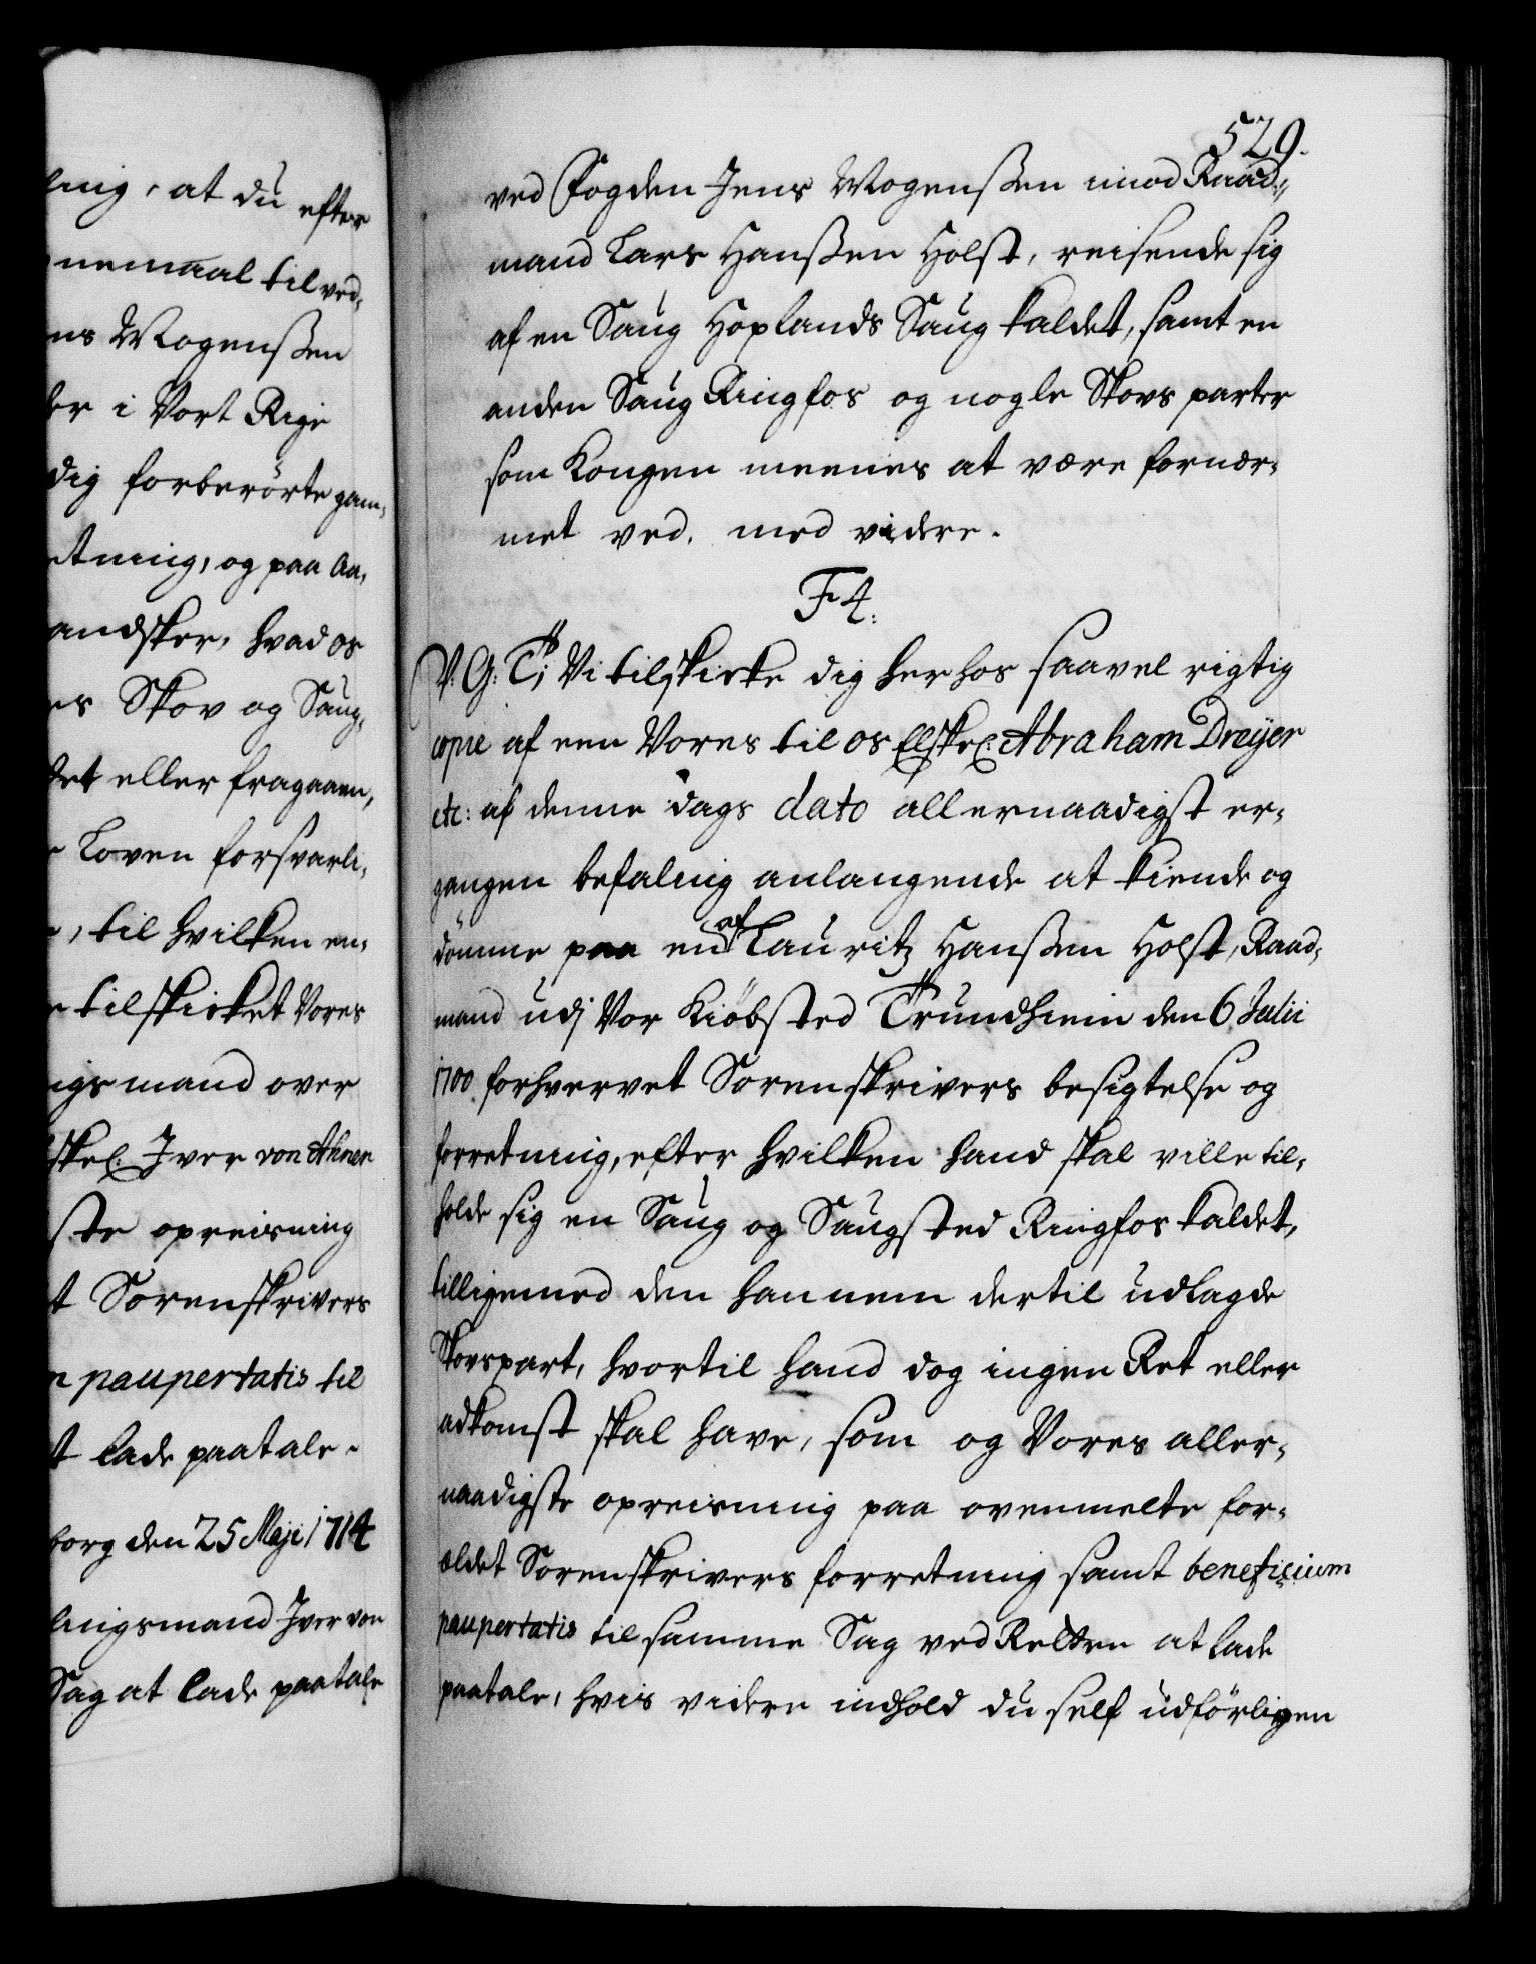 lnig, at du efter
nemaal til ved,
ns Mogensßen
er i Vort Rige
dig forberörte gam,
etning, og paa Aa,
andsker, hvad os
es Skov og Saug,
det eller fragaaen,
Loven forsvarli,
, til hvilken en,
tilskicket Vores
ngsmand over
skel: Iver von Ahnen
ste opreisning
t Sorenskrivers
paupertatis til
t lade paatale.
borg den 25 Maji 1714
lingsmand Iver von
Sag at lade paatale
529.
ved Fogden Jens Mogenßen imod Raad,,
mand Lars Hanßen Holst, reisende sig
af en Saug Hoplands Saug kaldet, samt en
anden Saug Ringfos og nogle Skovs parter
som Kongen meenes at være fornær,
met ved, med videre.
F4.
V. G: T; Vi tilskicke dig herhos saavel rigtig
copie af een Vores til os Elskel: Abraham Dreÿer
etc: af denne dags dato allernaadigst er,
gangen befaling anlangende at kiende og
dömme paa en af Lauritz Hanßen Holst, Raad,
mand udj Vor Kiöbsted Trundhiem den 6 Julii
1700 forhvervet Sorenskrivers besigtelse og
forretning, efter hvilken hand skal ville til,
holde sig en Saug og Saugsted Ringfos kaldet,
tilligemed den hannem dertil udlagde
Skovspart, hvortil hand dog ingen Ret eller
adkomst skal have, som og Vores aller,
naadigste opreisning paa ovenmelte for,
ældet Sorenskrivers forretning samt beneficium
paupertatis til samme Sag ved Retten at lade
paatale, hvis videre indhold du self udförligen